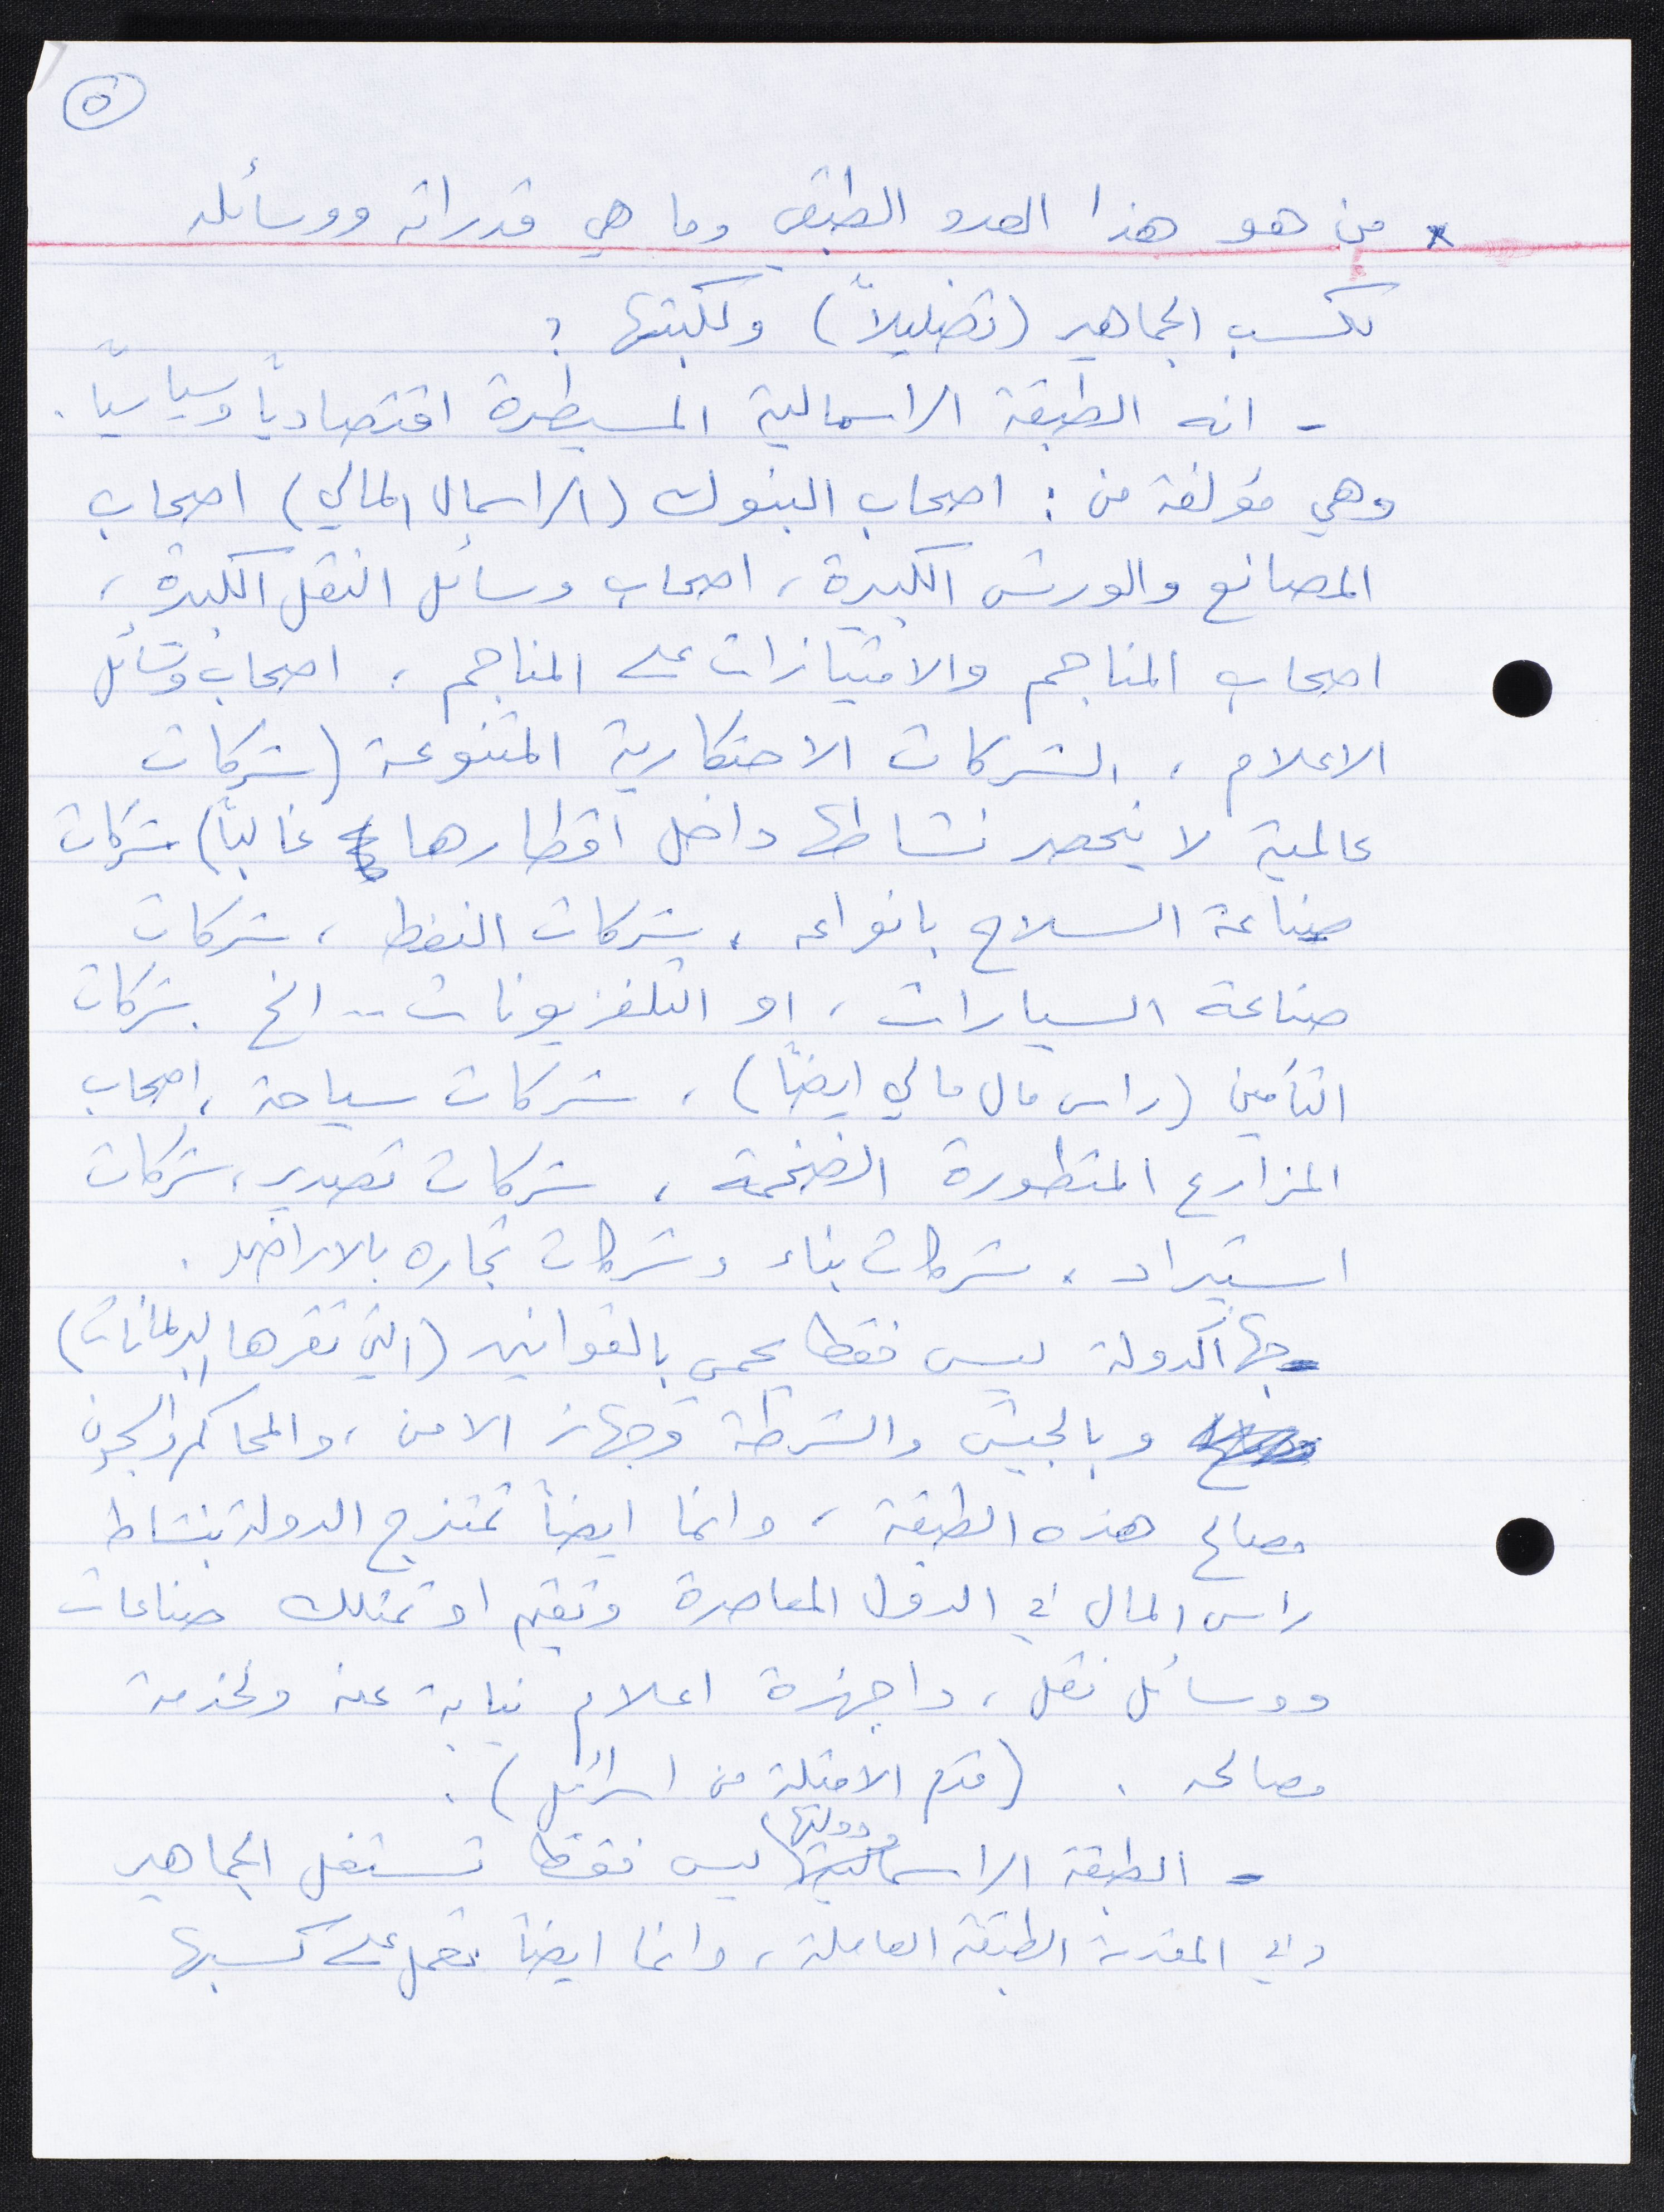 ٥
* من هو هذا العدو الطبقي وما هي قدراته ووسائله
لكسب الجماهير (تضليلاً) ولكبتها ؟
- انه الطبقة الراسمالية المسيطرة اقتصادياً وسياسياً .
وهي مؤلفة من : اصحاب البنوك (الراسمال المالي) اصحاب
المصانع والورش الكبيرة ، اصحاب وسائل النقل الكبيرة ،
اصحاب المناجم والامتيازات على المناجم ، اصحاب وسائل
الاعلام ، الشركات الاحتكارية المتنوعة (شركات
عالمية لا ينحصر نشاطها داخل اقطارها غالباً) شركات
صناعة السلاح بانواعه ، شركات النفط ، شركات
صناعة السيارات ، او التلفزيونات .. الخ . شركات
التأمين (راس مال مالي ايضاً) ، شركات سياحة ، اصحاب
المزارع المتطورة الضخمة ، شركات تصدير ، شركات
استيراد ، شركات بناء وشركات تجاره بالاراضي .
جهاز الدولة ليس فقط يحمي بالقوانين (التي تقرها البرلمانات)
وبالجيش والشرطة وجهاز الامن ، والمحاكم والسجون
مصالح هذه الطبقة ، وانما ايضاً تمتزج الدولة بنشاط
راس المال في الدول المعاصرة وتقيم او تمتلك صناعات
ووسائل نقل ، واجهزة اعلام نيابة عنه ولخدمة
مصالحه . (قدم الامثلة من اسرائيل) .
- الطبقة الراسمالية ودولتها ليس فقط تستغل الجماهير
وفي المقدمة الطبقة العاملة ، وانما ايضاً تعمل على كسبها